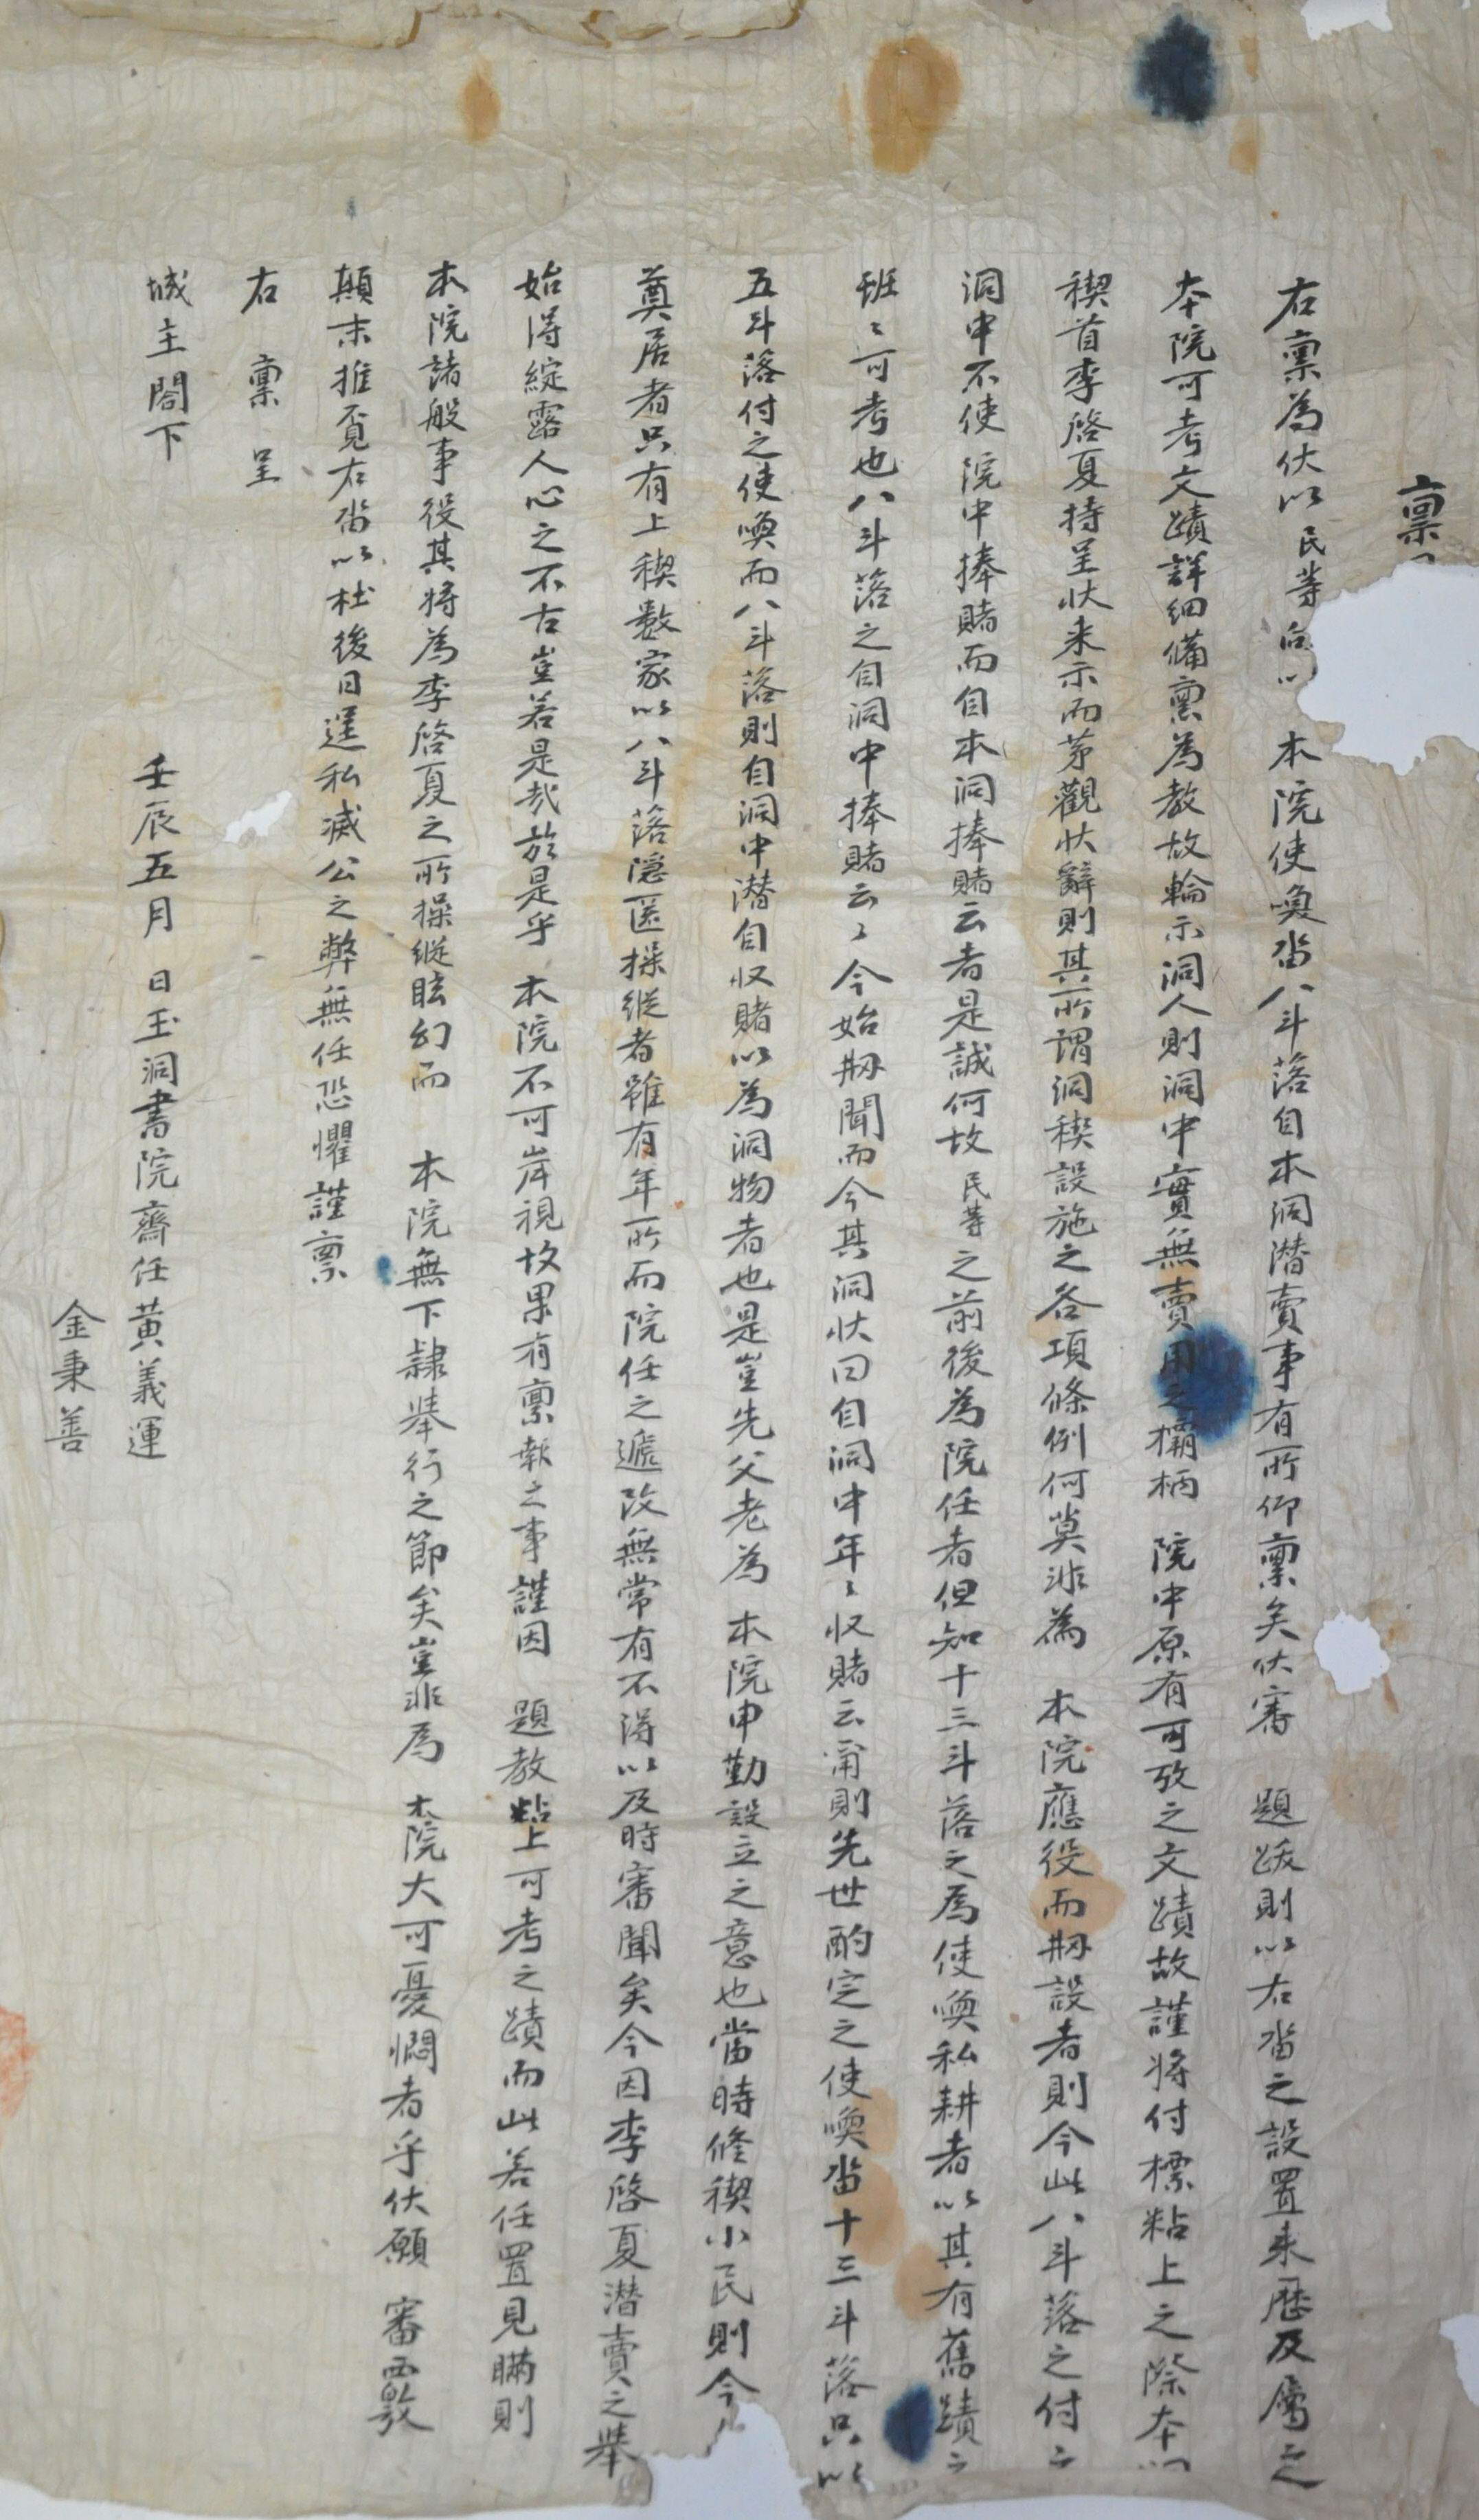 稟
右稟為伏以民等向以 本院使喚畓八斗落自本洞潛賣事有所仰稟矣伏審 題跋則以右畓之設置来歷及屬之
本院可考文蹟詳細備稟為教故輪示洞人則洞中實無賣用之欛柄 院中原有可攷之文蹟故謹将付標粘上之際本
稧首李啓夏持呈状来示而茅觀状辭則其所謂洞稧設施之各項條例何莫非為 本院應役而刱設者則今此八斗落之付之
洞中不使 院中捧賭而自本洞捧賭云者是誠何故民等之前後為院任者但知十三斗落之為使喚私耕者以其有舊蹟之
班〻可考也八斗落之自洞中捧賭云〻今始刱聞而今其洞状曰自洞中年〻収賭云甯則先世酌定之使喚畓十三斗落只以
五斗落付之使喚而八斗落則自洞中潛自収賭以為洞物者也是豈先父老為 本院申勤設立之意也當時修稧小民則今
奠居者只有上稧數家以八斗落隠匿操縦者雖有年所而院任之遞改無常有不得以及時審聞矣今因李啓夏潛賣之擧
始得綻露人心之不古豈若是哉於是乎 本院不可岸視故果有稟報之事謹因 題教粘上可考之蹟而此若任置見瞞則
本院諸般事役其将為李啓夏之所操縦眩幻而 本院無下隷擧行之節矣豈非為 本院大可憂憫者乎伏願 審覈
顛末推覓右畓以杜後日逞私滅公之弊無任恐懼謹稟
右 稟 呈
城主閤下
壬辰五月 日玉洞書院齋任黄義運
金秉善